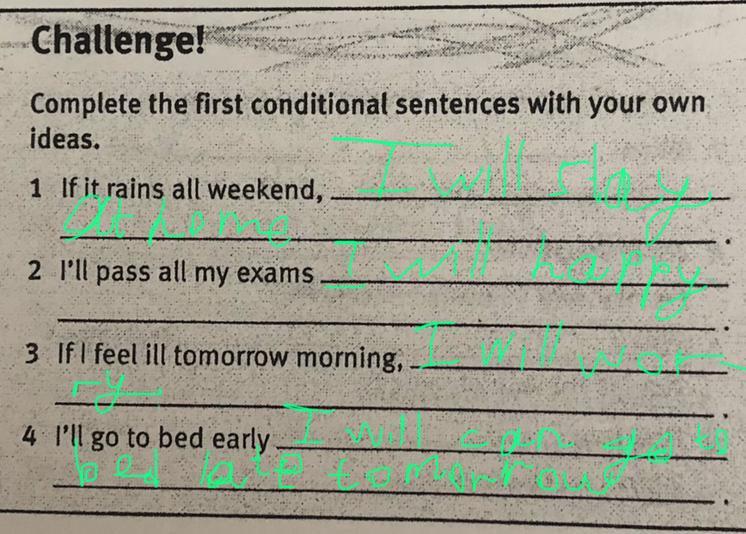 Challenge!
Complete the first conditional sentences with your own
ideas.
1 If it rains all weekend, I will stay
at home.
2 I'll pass all my exams I will happy
.
3 If I feel ill tomorrow morning, I will wor-
ry .
4 I'll go to bed early I will can go to
bed late tomorrow .